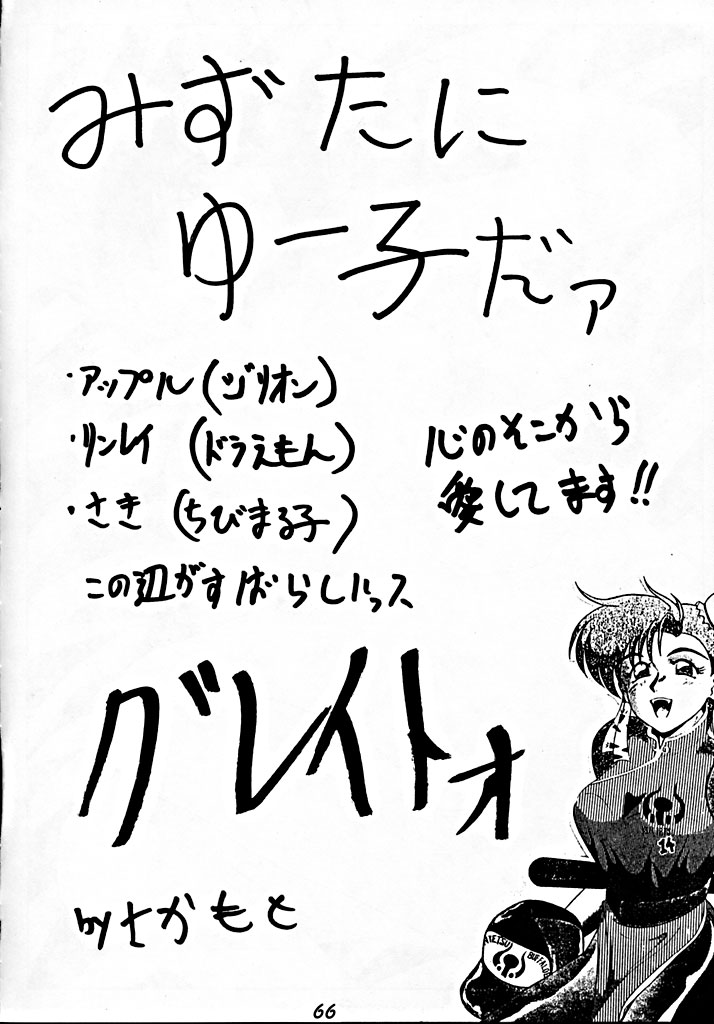 みずたに
ゆー子だァ
・アップル(ゾリオン)
・リンレイ (ドラえもん)
・さき (ちびまる子)
この辺がすばらしいっス
心のそこから
愛してます!!
グレイトォ
by さかもと
14
BUFFALO
66